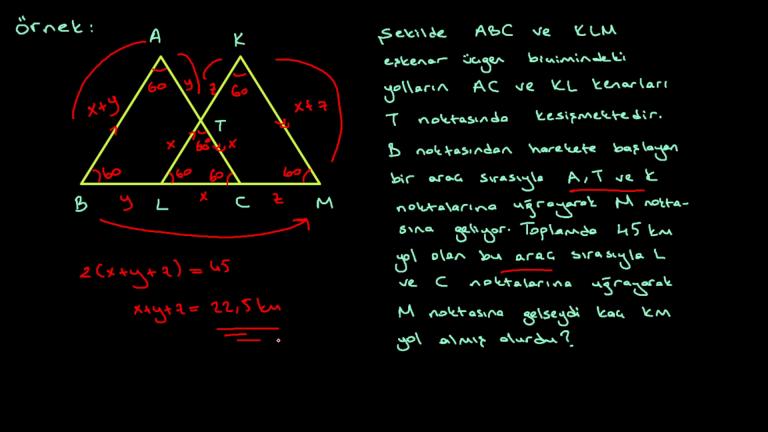 Örnek:
A
K
60
y
z
60
x+y
x+z
T
x
60
x
60
60
60
60
B
y
L
x
C
z
M
2(x+y+z) = 45
x+y+z = 22,5 km
Şekilde ABC ve KLM
eşkenar üçgen biçimindeki
yolların AC ve KL kenarları
T noktasında kesişmektedir.
B noktasından harekete başlayan
bir araç sırasıyla A, T ve K
noktalarına uğrayarak M nokta-
sına geliyor. Toplamda 45 km
yol alan bu araç sırasıyla L
ve C noktalarına uğrayarak
M noktasına gelseydi kaç KM
yol almış olurdu?